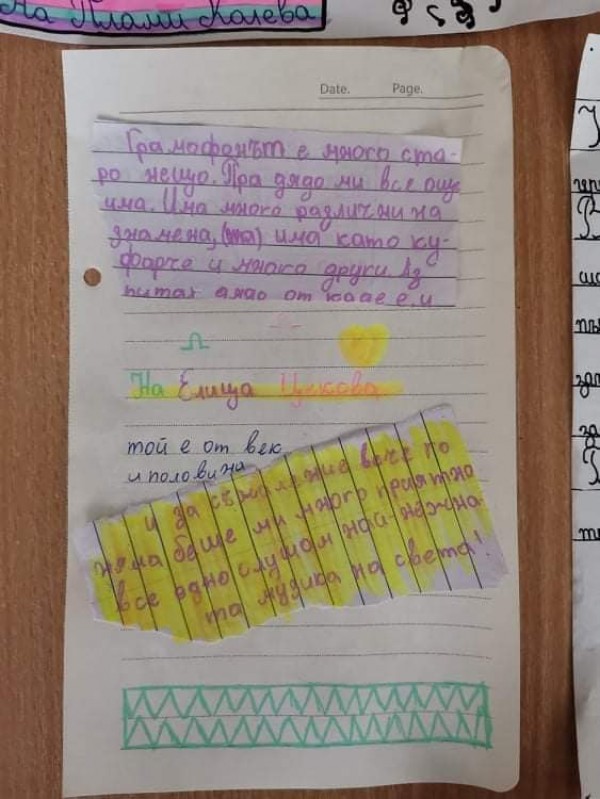 На Плами Колева
Date. Page.
Грамофонът е много ста-
ро нещо. Пра дядо ми все още
има. Има много различни на
знамена, има като ку-
фарче и много други
питах от е и
На Елица Цекова
той е от век
и половина
и за съжаление вече го
няма беше ми много приятно
все едно слушам най-нежна-
та музика на света!